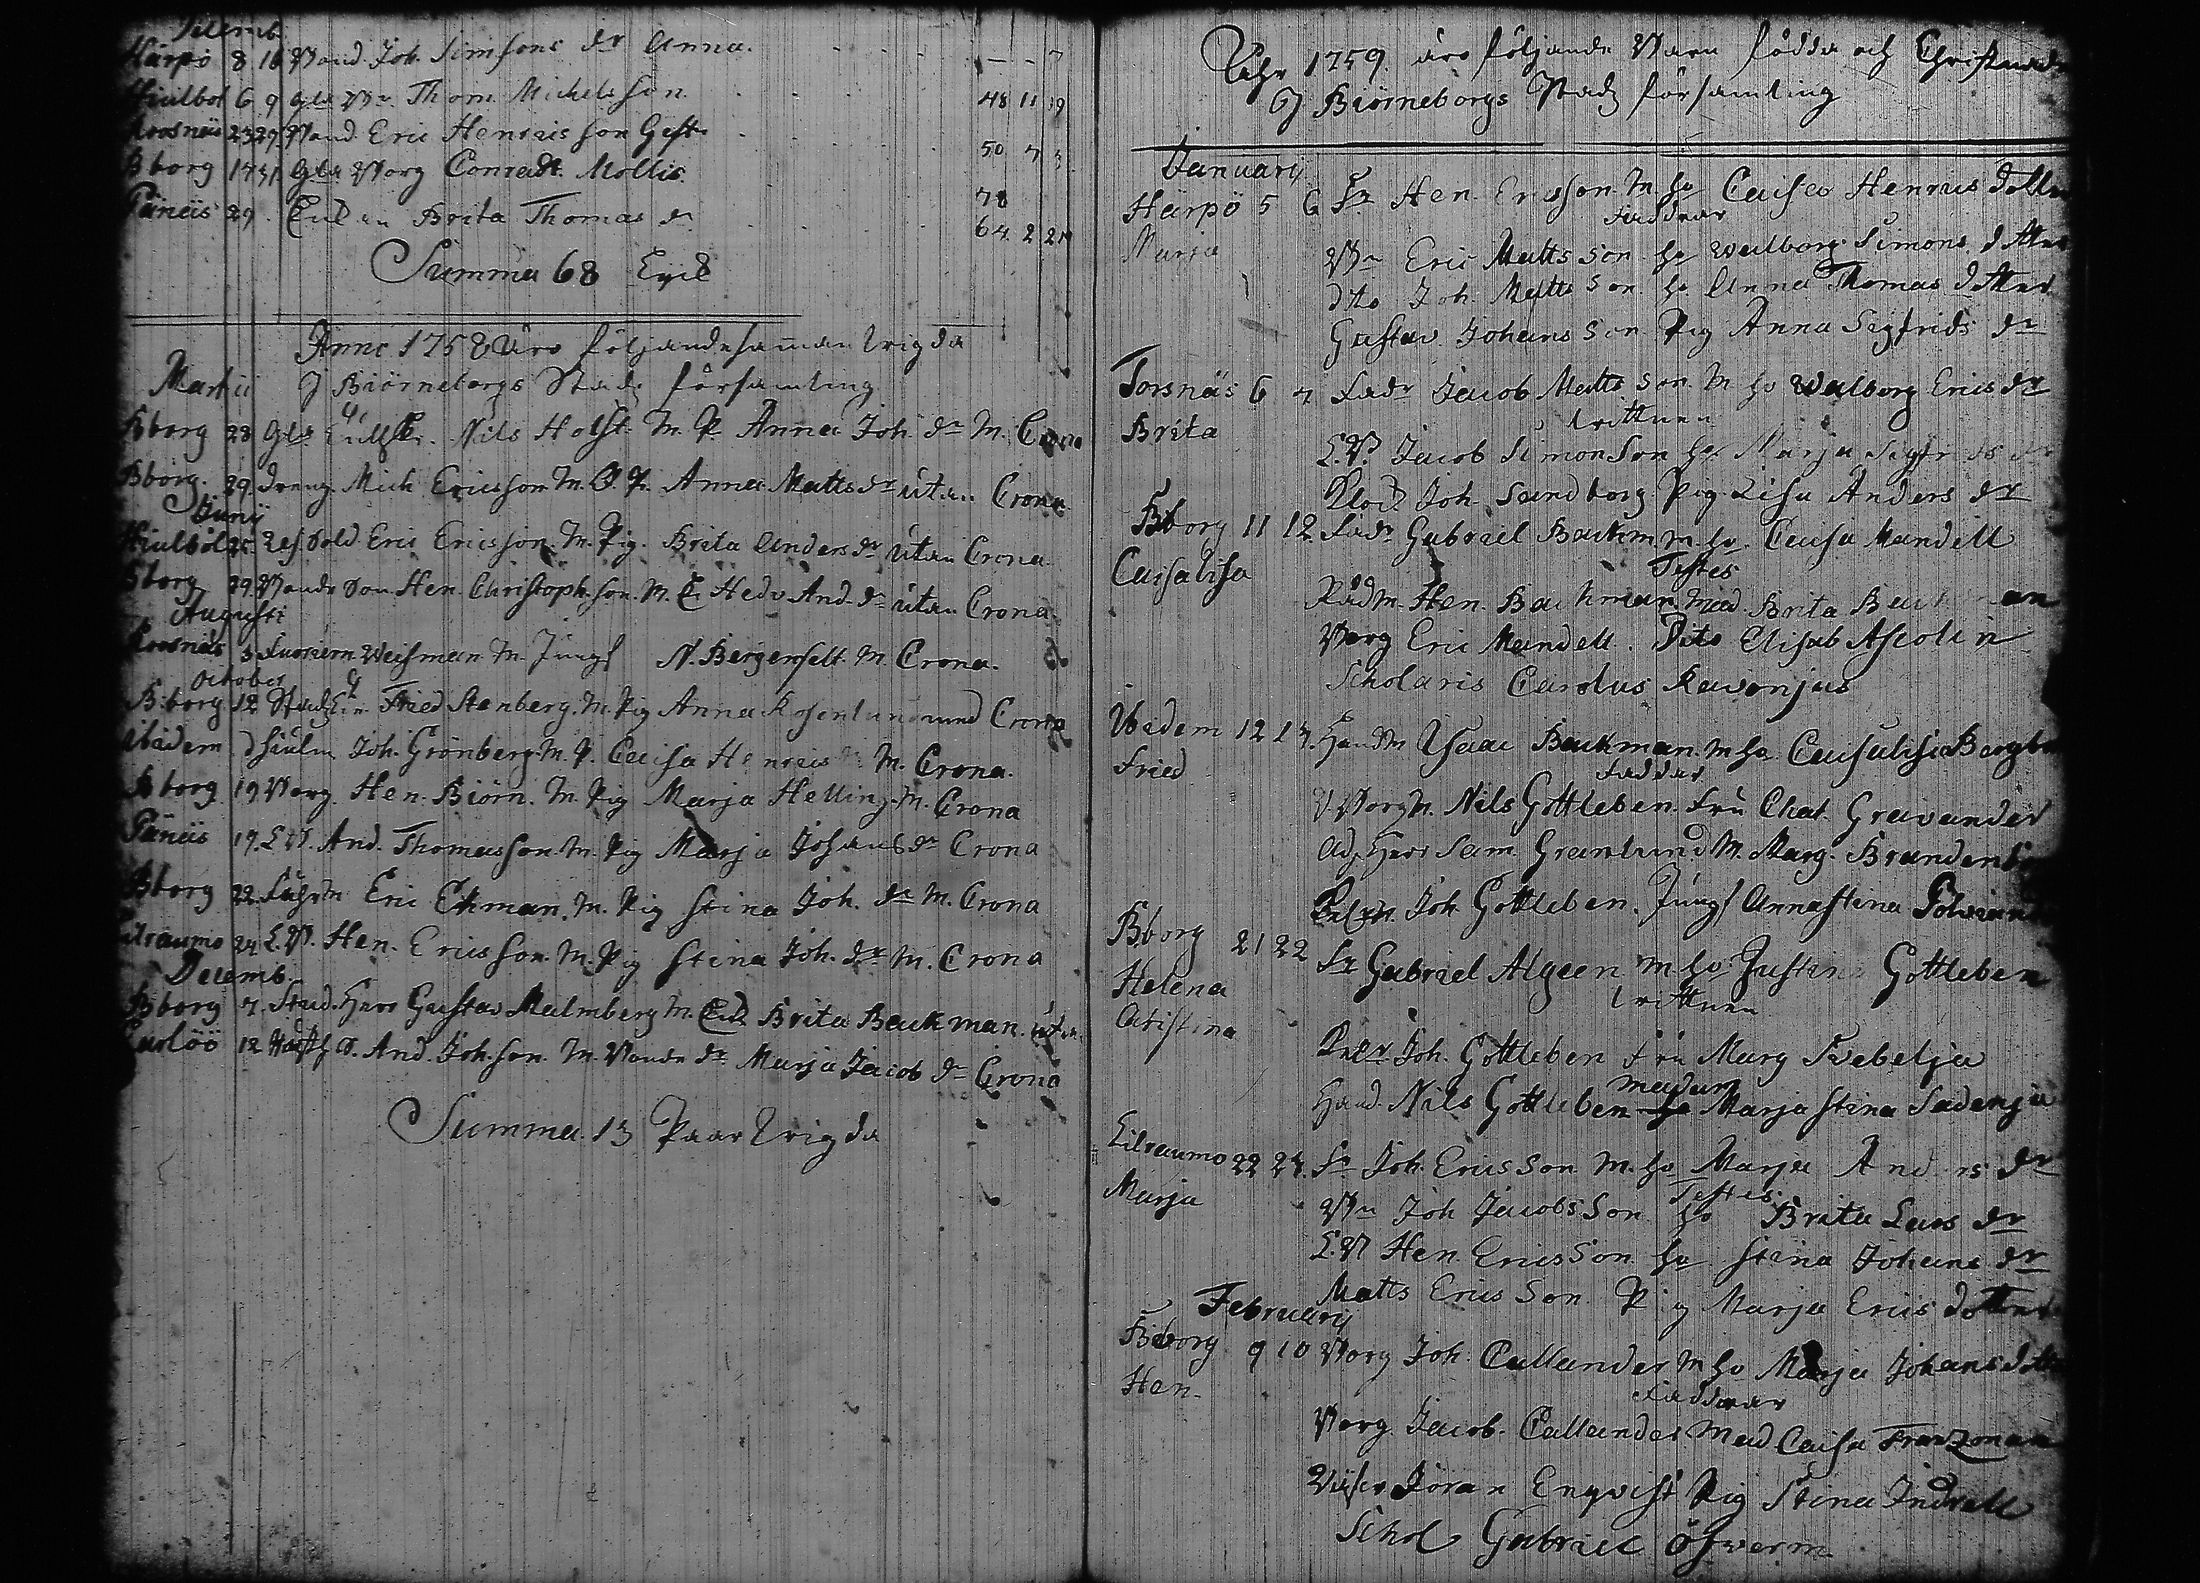 Decemb.
Härpö 8 10 Bond. Joh. Simsons dr Anna. - - 7
Hiulböl 6 9 Gla Bn. Thom. Michelsson 48 11 19
Koosnäs 23 27 Bond. Eric Henricsson Gest. 50 7 3
Bborg 17 31 Gla Borg Conradt Mollis. 78
Pänäs 29 Enkan Brita Thomas dr 64 2 21
Summa 68
Anno 1758 äro följande samman wigda
Martii J Biörneborgs Stads församling
Bborg 28 Gls Nils Holst. M. P. Anna Joh. dr M. Crona
Bborg. 29 Dreng. Mich Ericsson. M. P. Anna Matts dr utan Crona
Junij
Hiulböl 25 Eric Ericsson. M. Pig. Brita Anders dr utan Crona
Bborg 29 Bonde Son Hen. Christoph. son. M. E Hedv And. dr utan Crona
Augusti
Koosnäs 3 Weisman M. Jungf N. Bergenfelt M. Crona.
October
B.borg 12 Fried Stenberg. M. Pig Anna Rosenlund med Crona
Ibidem Joh. Grönberg. M. P. Caisa Henrics dr M. Crona.
Bborg 19 Borg. Hen. Biörn. M. Pig Marja Helling. M. Crona
Pänäs 19. L.B. And. Thomasson. M. Pig Marja Johans dr Crona
Bborg 22 Eric Ekman. M. Pig Stina Joh. dr M. Crona
Lilraumo 24 L.B. Hen. Ericsson. M. Pig Stina Joh. dr M. Crona
Decemb.
Bborg 7. Stud. Herr Gustav Malmberg M. Enk. Brita Backman. utan.
Lucklöö 12 And. Joh. son. M. Bonde dr Marja Jacob dr Crona
Summa. 13 Paar wigda
Åhr 1759 äro följande Barn födda och Christnade
J Biörneborgs Stads församling
Januarij
Härpö 5 6 Fr Hen. Ericsson. M. ho Caisa Henrics dotter
Faddrar
Marja Bn Eric Matts son ho Walborg Simons dotter
dito Joh. Matts son. ho Anna Thomas dotter
Gustav Johans son Pig Anna Sigfrids dr
Torsnäs 6 7 Fadr Jacob Matts son. M. ho Walborg Erics dr
wittnen
Brita L.B. Jacob Simonson ho Marja Sigfrids dr
Joh. Sandborg Pig Lisa Anders dr
Bborg 11 12 Fadr Gabriel Backm m. ho Caisa Mandell
Testes
Caisalisa Rådm. Hen. Backman Mad. Brita Backman
Borg Eric Mandell. Dito Elisab Ascolin
Scholaris Carolus Ravonjus
Ibidem 12 13. Handm Isaac Backman. m. ho Caisalisa Bergbo
Faddrar
Fried Borgm. Nils Gottleben. Fru Chat. Gravander
Adj. Herr Sam. Granlund M. Marg. Brandenb
Joh. Gottleben. Jungf Annastina Polviand
Bborg 21 22 Fr Gabriel Algeen m. ho Justina Gottleben
wittnen
Helena
Christina Joh. Gottleben Fru Marg Svebelja
madam
Hand. Nils Gottleben Marjastina Sadenja
Lilraumo 22 24. Fr Joh. Ericsson M. ho Marja Anders dr
Testes
Marja Bn Joh Jacobs son ho Brita Lars dr
L.B Hen. Ericsson ho Stina Johans dr
Matts Ericsson. Pig Marja Erics dotter
Februarij
Bborg 9 10 Borg Joh. Callander m ho Marja Johans dott
Faddrar
Hen. Borg. Jacob. Callander Mad Caisa Franzonan
Jöran Enqvist Pig Stina Indrell
Schol Gabriel Öfverm.